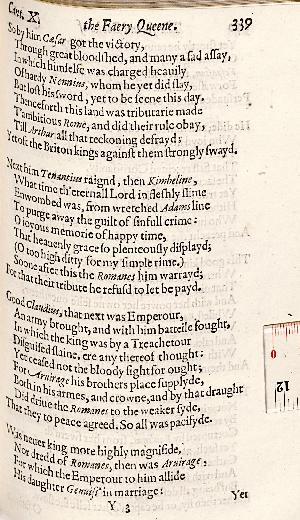 Cant. X.
the Faery Queene.
339
So by him Cæsar got the victory,
Through great bloudshed, and many a sad assay,
In which himselfe was charged heauily
Of hardy Nennius, whom he yet did slay,
But lost his sword, yet to be seene this day.
Thenceforth this land was tributarie made
T'ambitious Rome, and did their rule obay,
Till Arthur all that reckoning defrayd;
Yet oft the Briton kings against them strongly swayd.
Next him Tenantius raignd, then Kimbeline,
What time th'eternall Lord in fleshly slime
Enwombed was, from wretched Adams line
To purge away the guilt of sinfull crime:
O ioyous memorie of happy time,
That heauenly grace so plenteously displayd;
(O too high ditty for my simple rime.)
Soone after this the Romanes him warrayd;
For that their tribute he refusd to let be payd.
Good Claudius, that next was Emperour,
An army brought, and with him batteile fought,
In which the king was by a Treachetour
Disguised slaine, ere any thereof thought:
Yet ceased not the bloudy fight for ought;
For Aruirage his brothers place supplyde,
Both in his armes, and crowne, and by that draught
Did driue the Romanes to the weaker syde,
That they to peace agreed. So all was pacifyde.
Was neuer king more highly magnifide,
Nor dredd of Romanes, then was Aruirage,
For which the Emperour to him allide
His daughter Genuiss' in marriage:
Y 3
Yet
0
12